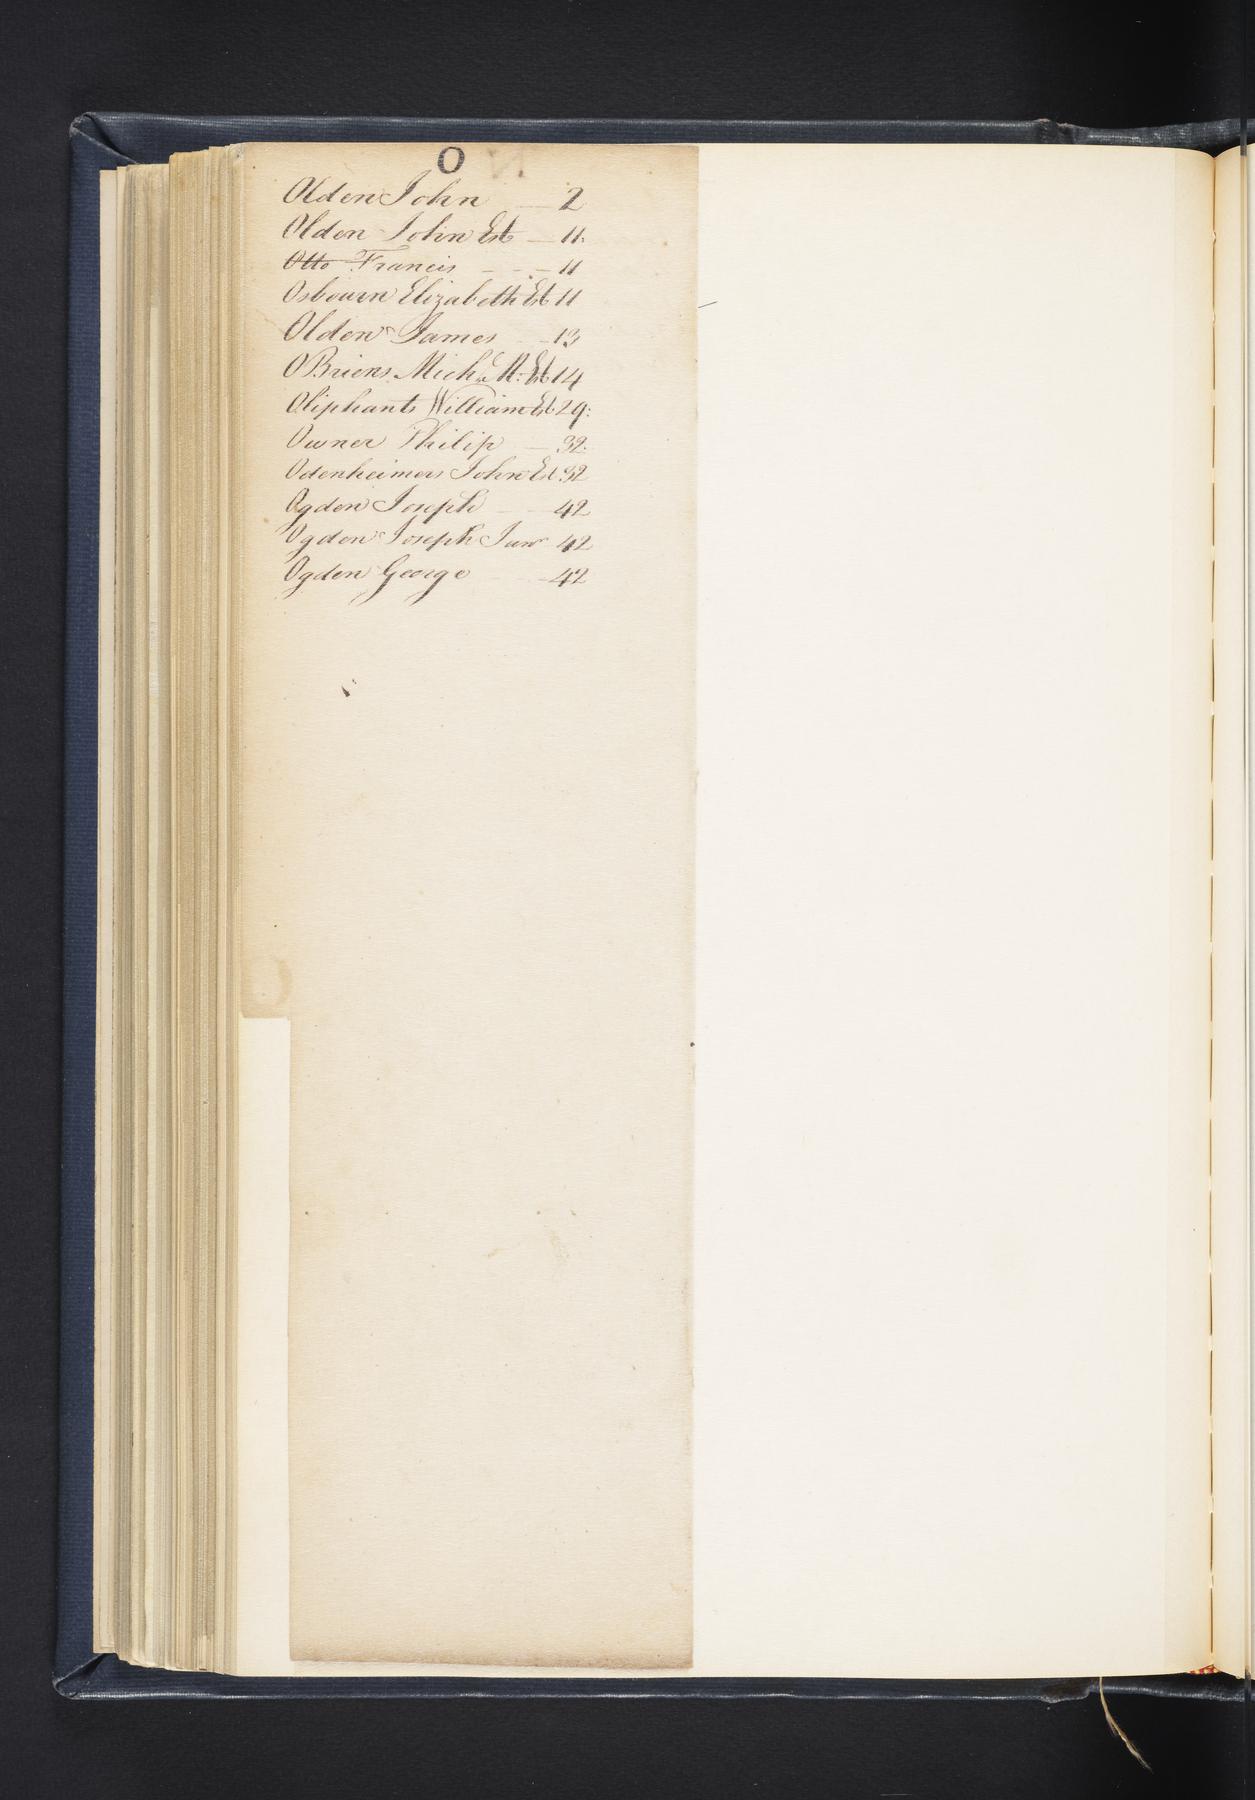 O
Olden John 2
Olden John Est 11
Otto Francis 11
Osbourn Elizabeth Est 11
Olden James 13
OBriens Michl M: Est 14
Oliphants William Est 29:
Owner Philip 32
Odenheimers John Est 32
Ogden Joseph 42
Ogden Joseph Junr 42
Ogden George 42